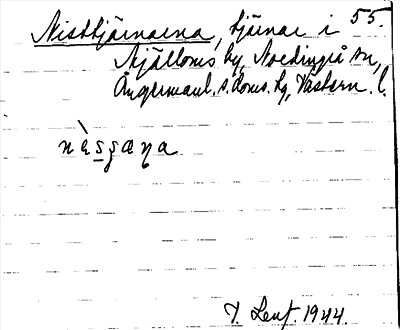 Nisttjärnarna, tjärnar i 55.
Mjälloms by, Nordingrå sn,
Ångermanl. s. doms. hg, Västern. l.
nè̀sʒaɳa
J. Lenf. 1944.